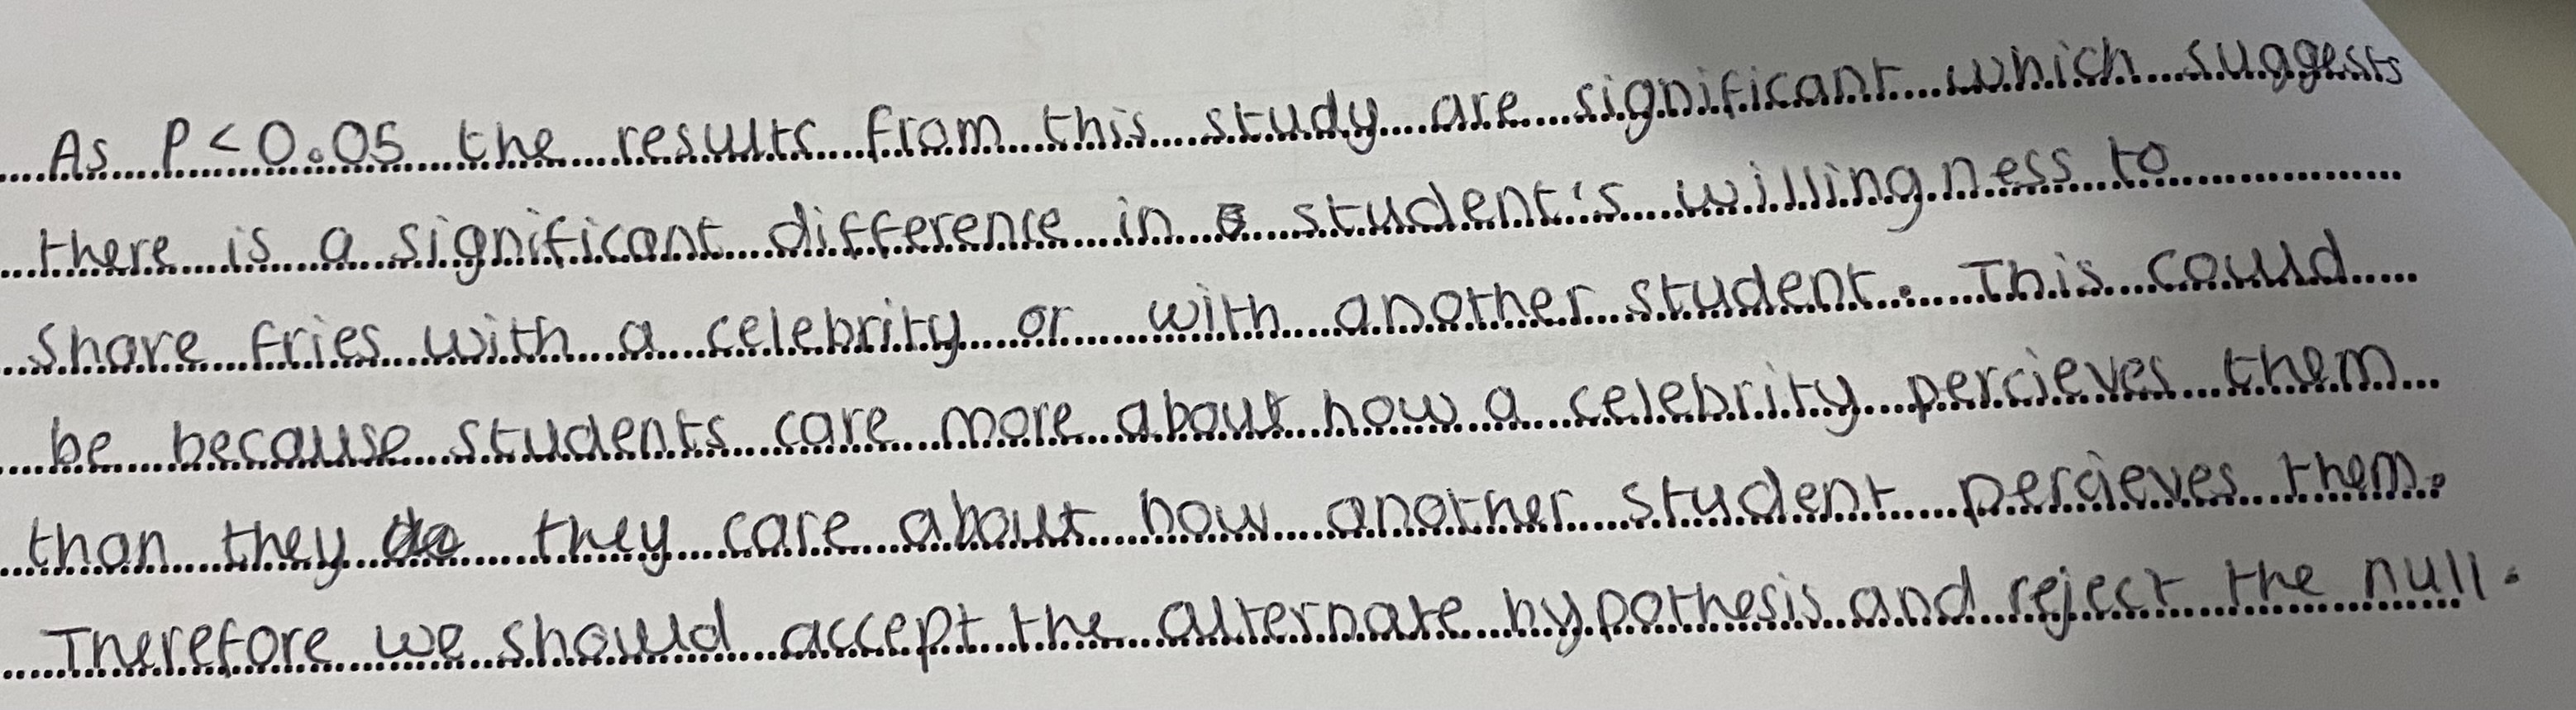 As P<0.05 the results from this study are significant which suggests
there is a significant difference in student's willingness to
share fries with a celebrity or with another student. This could
be because students care more about how a celebrity percieves them
than they do they care about how another student percieves them.
Therefore we should accept the alternate hypothesis and reject the null.